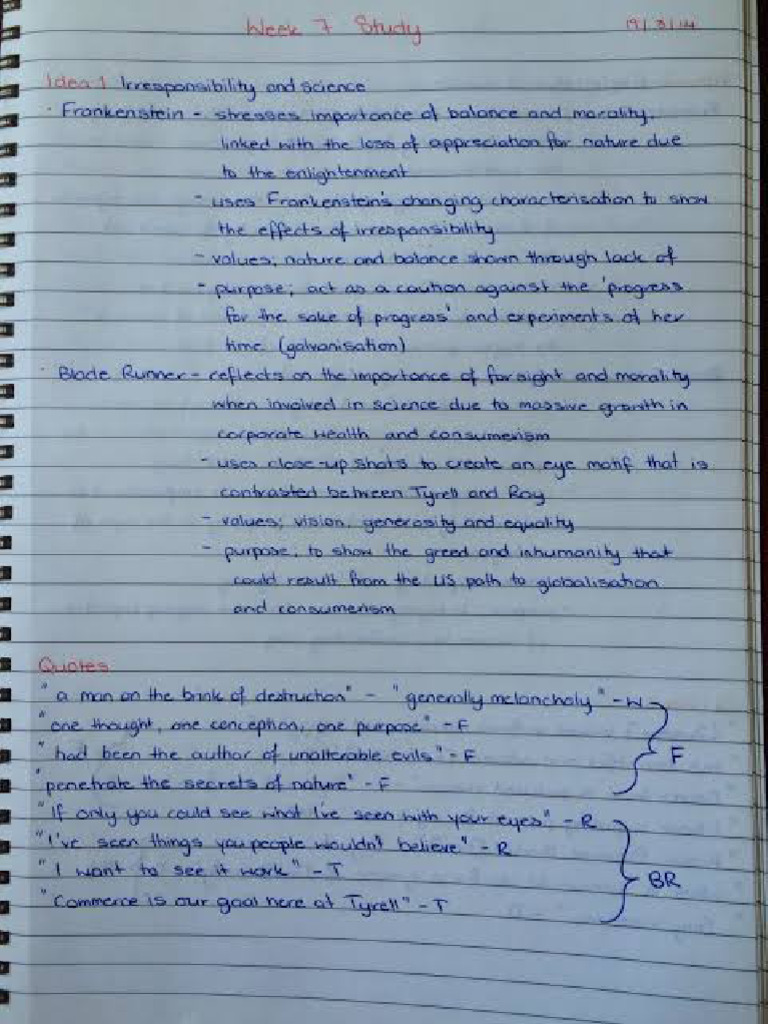 Week 7 Study 19/3/14
Idea 1 Irresponsibility and science
· Frankenstein - stresses importance of balance and morality,
linked with the loss of appreciation for nature due
to the enlightenment
- uses Frankenstein's changing characterisation to show
the effects of irresponsibility
- values; nature and balance shown through lack of
- purpose; act as a caution against the 'progress
for the sake of progress' and experiments of her
time (galvanisation)
· Blade Runner - reflects on the importance of forsight and morality
when involved in science due to massive growth in
corporate wealth and consumerism
- uses close-up shots to create an eye motif that is
contrasted between Tyrell and Roy
- values; vision, generosity and equality
- purpose; to show the greed and inhumanity that
could result from the US path to globalisation
and consumerism
Quotes
"a man on the brink of destruction" - "generally melancholy" - W
"one thought, one conception, one purpose" - F
"had been the author of unalterable evils" - F
F
"penetrate the secrets of nature" - F
"If only you could see what I've seen with your eyes" - R
"I've seen things you people wouldn't believe" - R
"I want to see it work" - T
BR
"Commerce is our goal here at Tyrell" - T